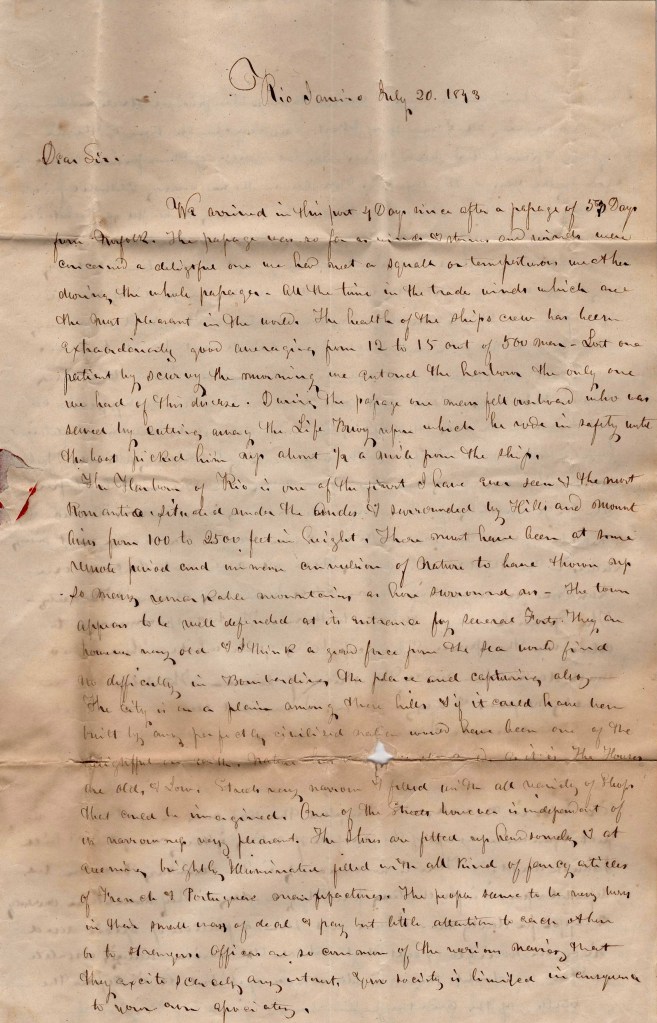 Rio Janeiro July 20. 1843
Dear Sir.
We arrived in this port 4 Days since after a passage of 53 Days
from Norfolk. The passage was so far as winds & storms and winds were
concerned a delightful one we had not a squall or tempestuous weather
during the whole passage - All the time in the trade winds which are
the most pleasant in the world. The health of the ships crew has been
extraordinarily good averaging from 12 to 15 out of 500 men - Lost one
patient by scurvy the morning we entered the harbour the only one
we had of this disease. During the passage one man fell overboard who was
saved by cutting away the Life Buoy upon which he rode in safety until
the boat picked him up about 1/2 a mile from the ship.
The Harbour of Rio is one of the finest I have ever seen & the most
Romantic. situated under the Andes & surrounded by Hills and mount
ains from 100 to 2500 feet in height. There must have been at some
remote period and convulsion of Nature to have thrown up
so many remarkable mountains as here surround us - The town
appears to be well defended at its entrance by several Forts. They are
however very old & I think a good force from the sea would find
no difficulty in Bombarding the place and capturing also
The City is on a plain among these hills & if it could have been
built by any perfectly civilised nation would have been one of the
as it is The Houses
are old, & Low. Streets very narrow & filled with all variety of shops
that could be imagined. One of the streets however is independent of
its narrowness very pleasant. The stores are fitted up handsomely & at
evening brightly Illuminated filled with all kind of fancy articles
of French & Portuguese manufactures. The people seem to be very busy
in their small way of deal & pay but little attention to each other
or to strangers. Officers are so common of the various navies that
they excite scarcely any interest. Your society is limited in consequence
to your own associates.